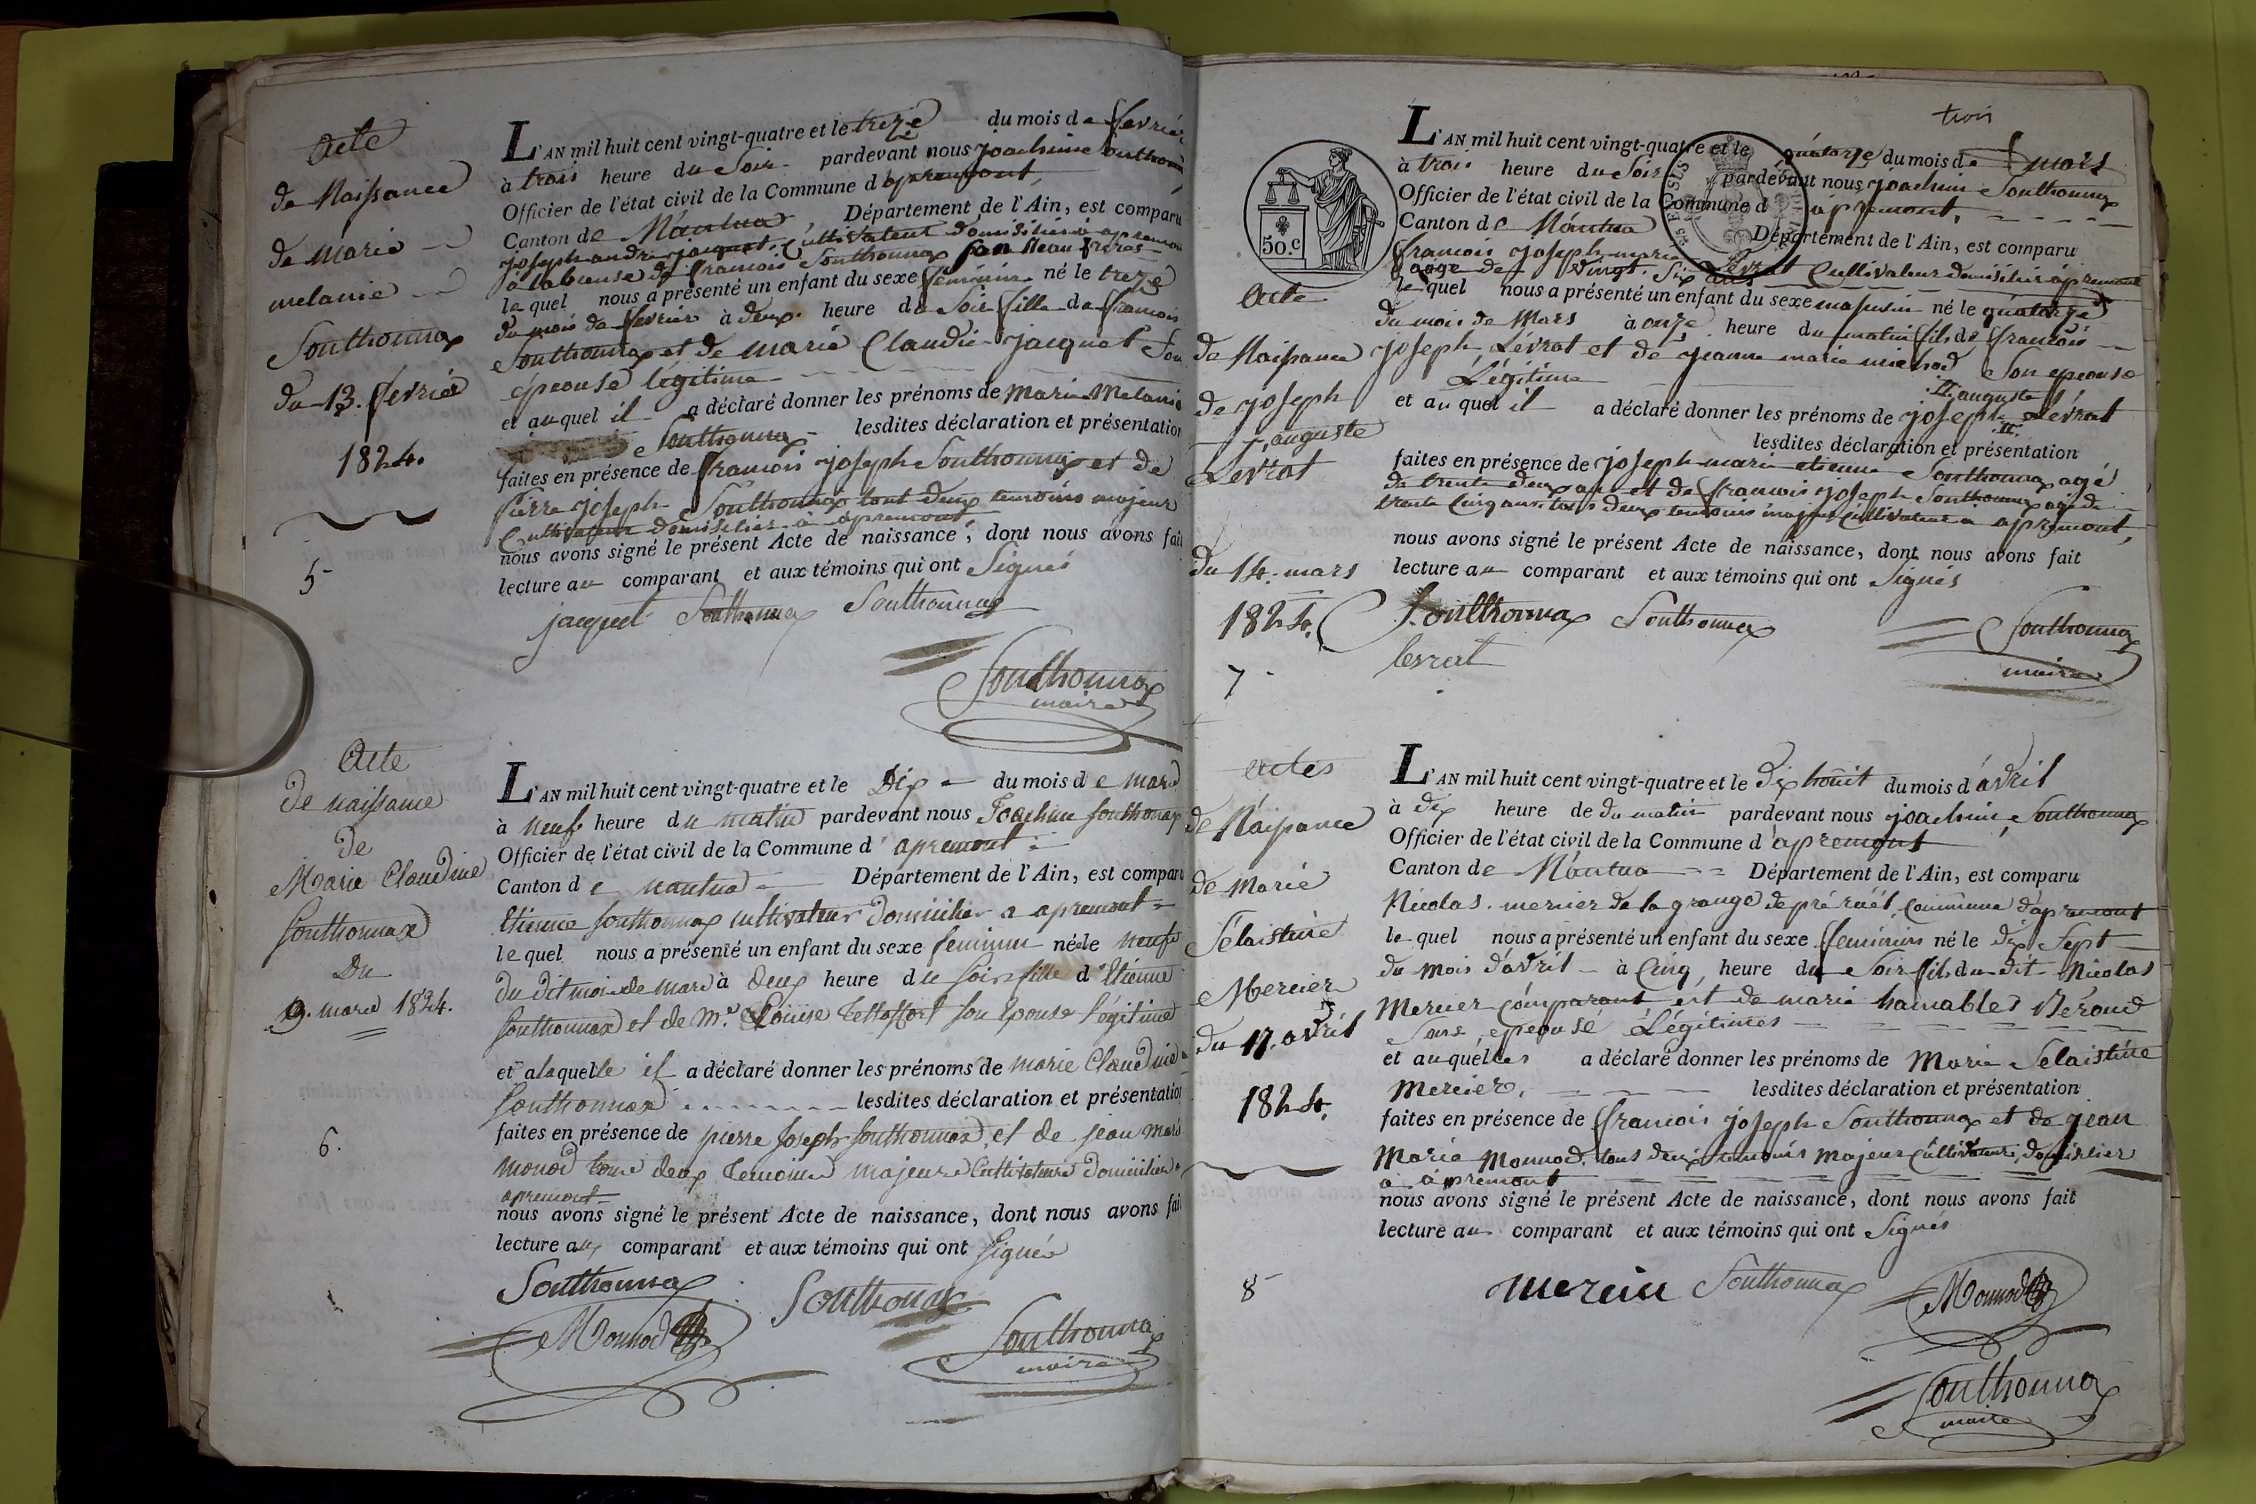 acte
de Naissance
de marie
melanie
Southonnax
du 13. fevrier
1824.
5
L'AN mil huit cent vingt-quatre et le treze du mois de fevrier
à trois heure du Soir pardevant nous joachime Southonnax
Officier de l'état civil de la Commune d'apremont,
Canton de Nantua, Département de l'Ain, est comparu
joseph andré jacquet, Cultivateur domisilier à apremon
à labsense de francois Southonnax Son Beau freres
le quel nous a présenté un enfant du sexe feminin né le treze
du mois de fevrier à deux heure du Soir fille de francois
Southonnax et de marie Claudie jacquet Son
epeouse légitime
et auquel il a déclaré donner les prénoms de Marie Melanie
Southonnax lesdites déclaration et présentation
faites en présence de francois joseph Southonnax et de
Pierre joseph Southonnax tout deux temoins majeur
Cultivateur domisilier a apremont,
nous avons signé le présent Acte de naissance, dont nous avons fait
lecture au comparant et aux témoins qui ont Signés
jacquet Southonnax Southonnax
Southonnax
maire
Acte
de naissance
de
Marie Claudine
Southonnax
Du
9. mars 1824.
6.
L'AN mil huit cent vingt-quatre et le Dix du mois de mars
à neuf heure du matin pardevant nous Joachim Southonax
Officier de l'état civil de la Commune d'apremont
Canton de nantua Département de l'Ain, est comparu
Etienne Southonnax cultivateur domicilier a apremont
le quel nous a présenté un enfant du sexe feminin né le neuf
du dit mois de mars à deux heure du soir fille d'Etienne
Southonnax et de Me Louise son Epouse légitime
et alaquelle il a déclaré donner les prénoms de marie Claudine
Southonnax lesdites déclaration et présentation
faites en présence de pierre Joseph Southonnax et de jean marie
monod tous deux temoins majeurs Cultivateurs domicilier a
apremont
nous avons signé le présent Acte de naissance, dont nous avons fait
lecture au comparant et aux témoins qui ont signés
Southonnax Southonax
Monnod Southonnax
maire
trois
50.c
acte
de Naissance
de joseph
auguste
Levrat
du 14. mars
1824.
7
L'AN mil huit cent vingt-quatre et le quatorze du mois de mars
à trois heure du Soir pardevant nous joachim Southonnax
Officier de l'état civil de la Commune d'apremont,
Canton de Nantua Département de l'Ain, est comparu
francois joseph marie Levrat Cultivateur domisilier à apremont
age de vingt Six ans
le quel nous a présenté un enfant du sexe masculin né le quatorze
du mois de Mars à onze heure du matin fils de francois
joseph Lévrat et de jeanne marie michod Son epeouse
Légitime
auguste
et au quel il a déclaré donner les prénoms de joseph Lévrat
lesdites déclaration et présentation
faites en présence de joseph marie etienne Southonnax agé
de trente deux ans et de francois joseph Southonnax agé de
trente Cinq ans, tous deux temoins majeur Cultivateur a apremont,
nous avons signé le présent Acte de naissance, dont nous avons fait
lecture au comparant et aux témoins qui ont Signés
Southonnax Southonnax Southonnax
levrat maire
actes
de Naissance
de Marie
Selaistine
Mercier
du 17. avril
1824.
8
L'AN mil huit cent vingt-quatre et le dix houit du mois d'avril
à dix heure de du matin pardevant nous joachim Southonnax
Officier de l'état civil de la Commune d'apremont
Canton de Nantua Département de l'Ain, est comparu
Nicolas mercier de la grange de pré ruét, commune d'apremont
le quel nous a présenté un enfant du sexe feminin né le dix Sept
du mois d'avril à Cinq heure du Soir fils du dit Nicolas
Mercier comparant et de marie hamable Béroud
Sons epeousé Légitimes
et auquelles a déclaré donner les prénoms de Marie Selaistine
Mercier, lesdites déclaration et présentation
faites en présence de francois joseph Southonnax et de jean
Marie Monnod. tous deux temoins majeur Cultivateurs, domisilier
a apremont
nous avons signé le présent Acte de naissance, dont nous avons fait
lecture au comparant et aux témoins qui ont Signés
mercier Southonnax Monnod
Southonnax
maire